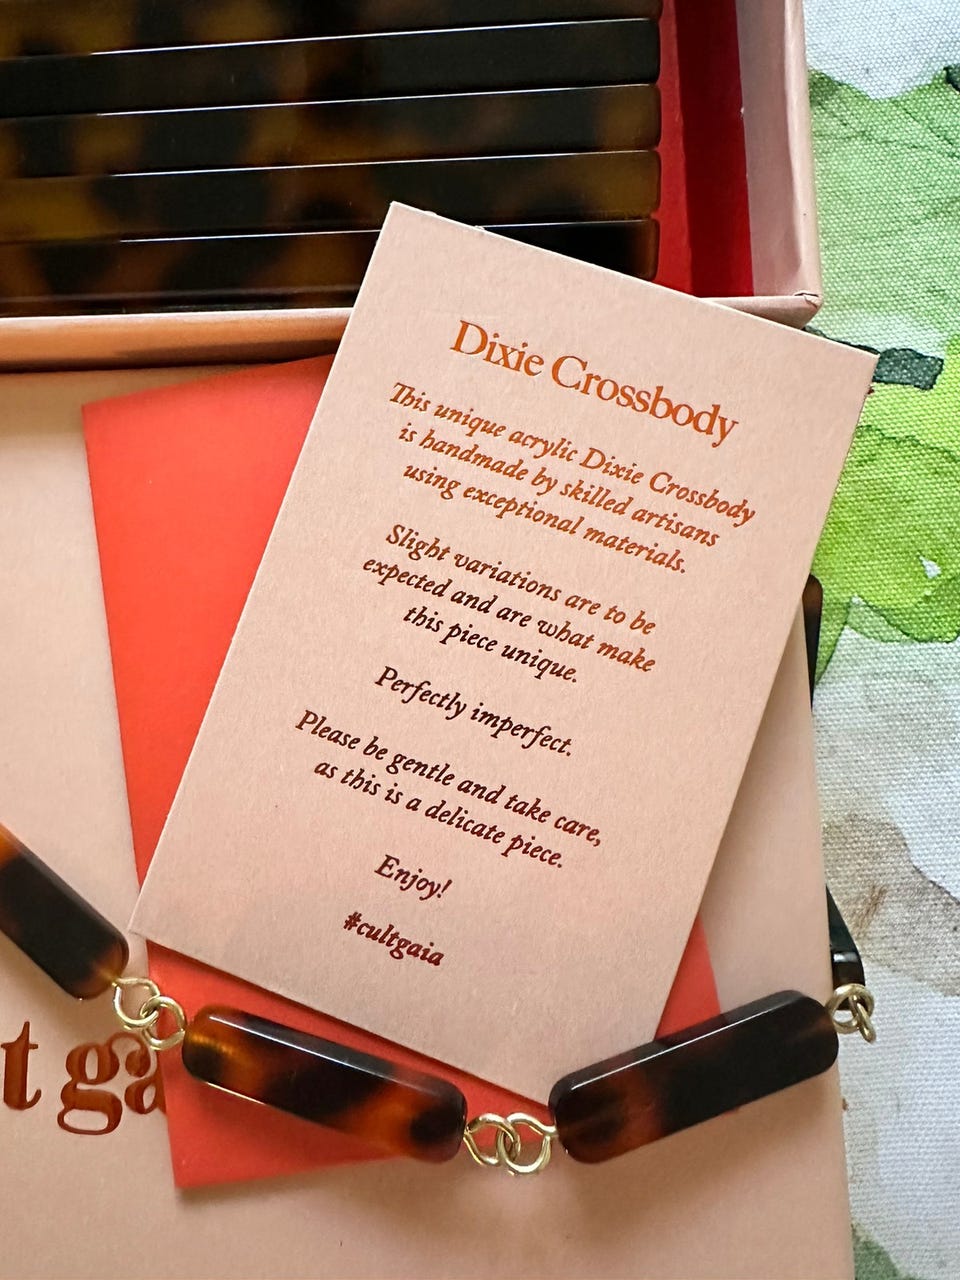 Dixie Crossbody
This unique acrylic Dixie Crossbody
is handmade by skilled artisans
using exceptional materials.
Slight variations are to be
expected and are what make
this piece unique.
Perfectly imperfect.
Please be gentle and take care,
as this is a delicate piece.
Enjoy!
#cultgaia
t ga